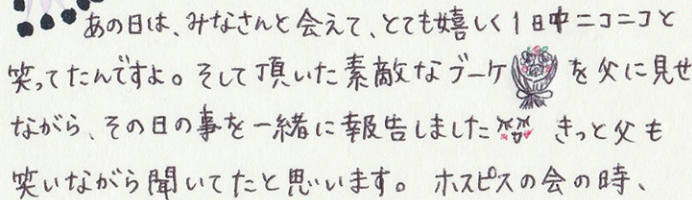 あの日は、みなさんと会えて、とても嬉しく1日中ニコニコと
笑ってたんですよ。そして頂いた素敵なブーケを父に見せ
ながら、その日の事を一緒に報告しました きっと父も
笑いながら聞いてたと思います。ホスピスの会の時、